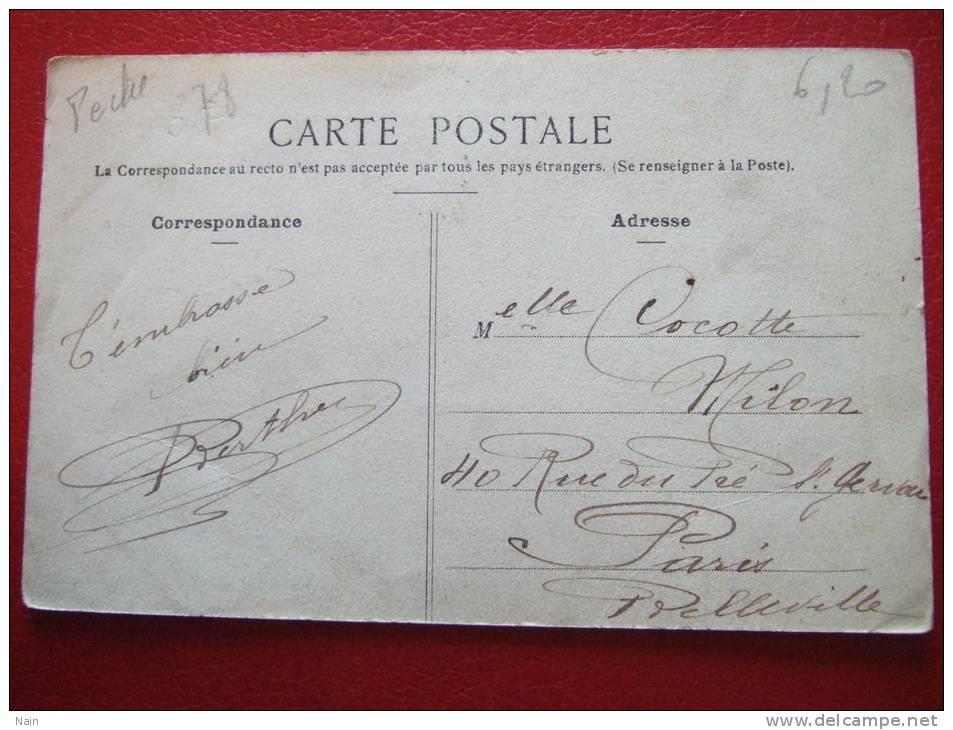 Pêche 78
6,20
CARTE POSTALE
La Correspondance au recto n'est pas acceptée par tous les pays étrangers. (Se renseigner à la Poste).
Correspondance
T'embrasse
bien
Berthe
Adresse
Melle Cocotte
Milon
40 Rue du Pré St Gervais
Paris
Belleville
Nain
www.delcampe.net